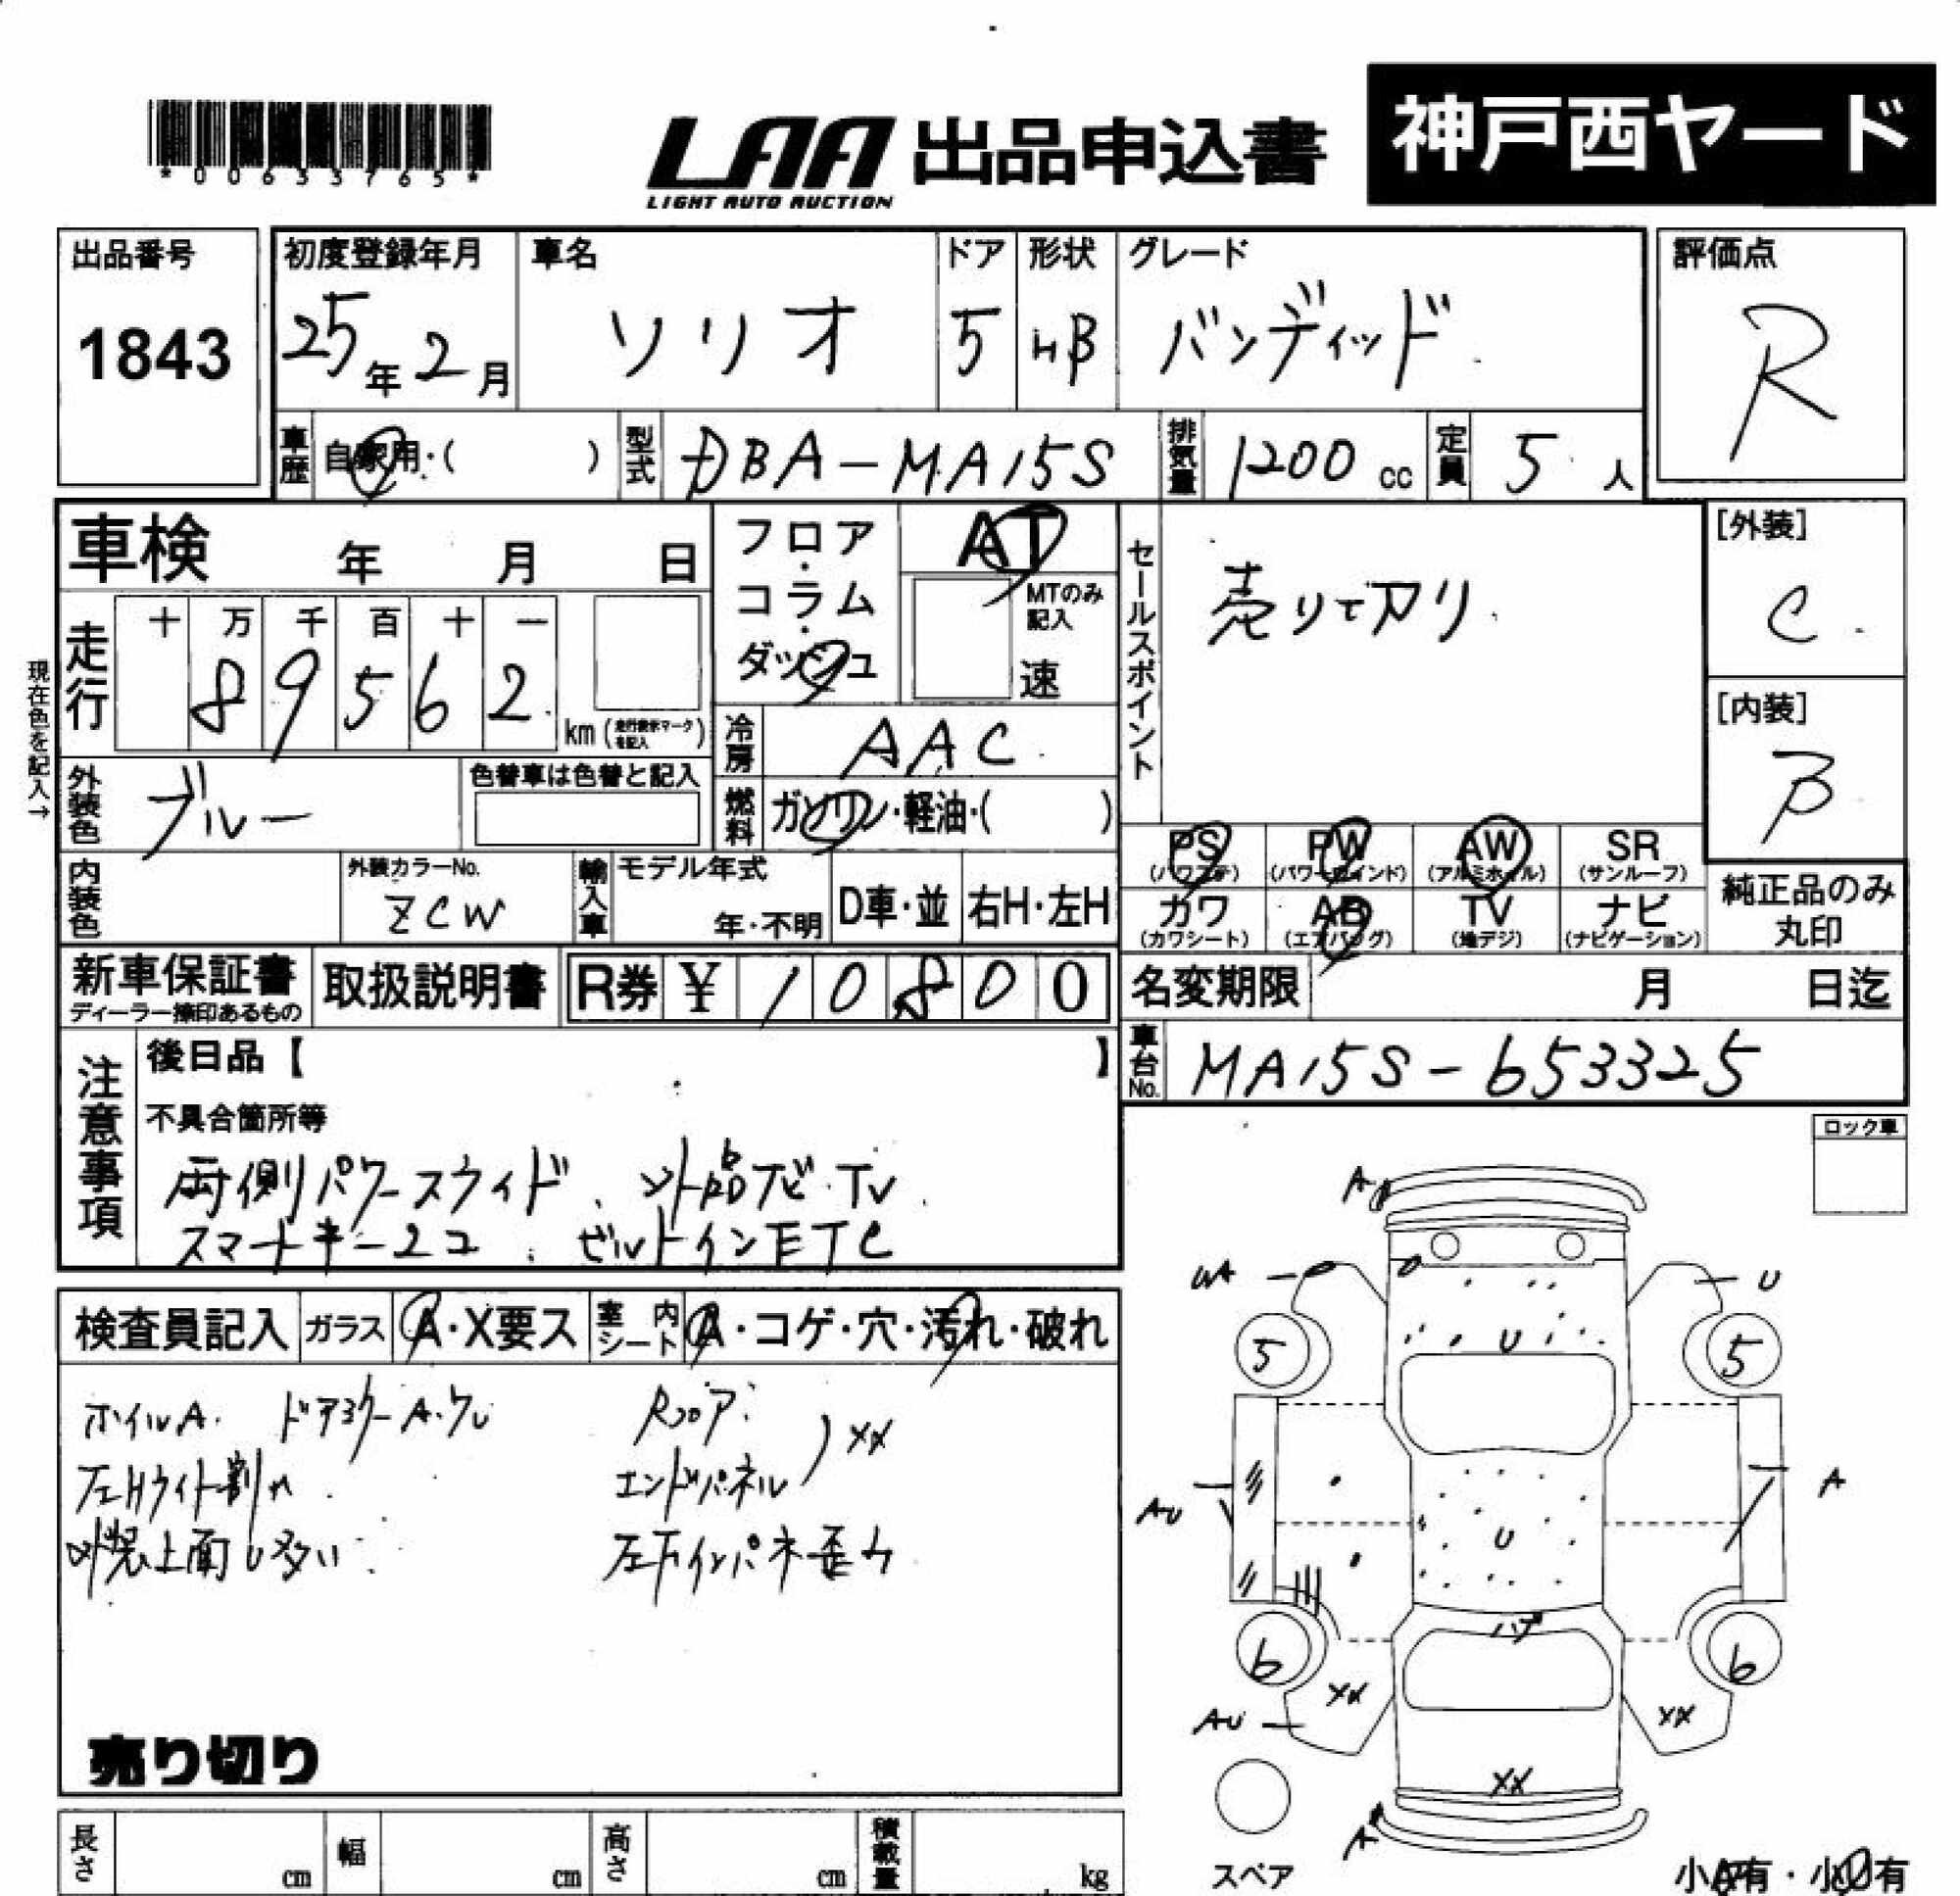 *00633765*
LAA 出品申込書
LIGHT AUTO AUCTION
神戸西ヤード
出品番号
1843
初度登録年月
25年2月
車名
ソリオ
ドア
5
形状
HB
グレード
バンディッド
評価点
R
車歴
自家用・( )
型式
DBA-MA15S
排気量
1200cc
定員
5人
車検 年 月 日
フロア・コラム・ダッシュ
AT
MTのみ記入
速
セールスポイント
売り切り
[外装]
C
[内装]
B
現在色を記入→
走行
十 万 千 百 十 一
8 9 5 6 2
km(走行表示マークを記入)
冷房
AAC
外装色
ブルー
色替車は色替と記入
燃料
ガソリン・軽油・( )
内装色
外装カラーNo.
ZCW
輸入車
モデル年式
年・不明
D車・並
右H・左H
PS (パワステ)
PW (パワーウインド)
AW (アルミホイル)
SR (サンルーフ)
カワ (カワシート)
AB (エアバッグ)
TV (地デジ)
ナビ (ナビゲーション)
純正品のみ丸印
新車保証書
ディーラー捺印あるもの
取扱説明書
R券 ¥ 1 0 8 0 0
名変期限 月 日迄
車台No.
MA15S-653325
注意事項
後日品【 】
不具合箇所等
両側パワースライド、ソト品ナビ・TV
スマートキー2コ ビルトインETC
ロック車
検査員記入
ガラス
A・X要ス
室内シート
A・コゲ・穴・汚れ・破れ
ホイルA. ドアミラーA・ワレ
左Hライト割れ
外装上面U多い
Rフロア
エンドパネル
XX
左下インパネ歪み
売り切り
A
UA
U
U
5
5
AU
A
U
ハゲ
6
6
XX
XX
AU
XX
A
スペア
小A有・小U有
長さ cm
幅 cm
高さ cm
積載量 kg